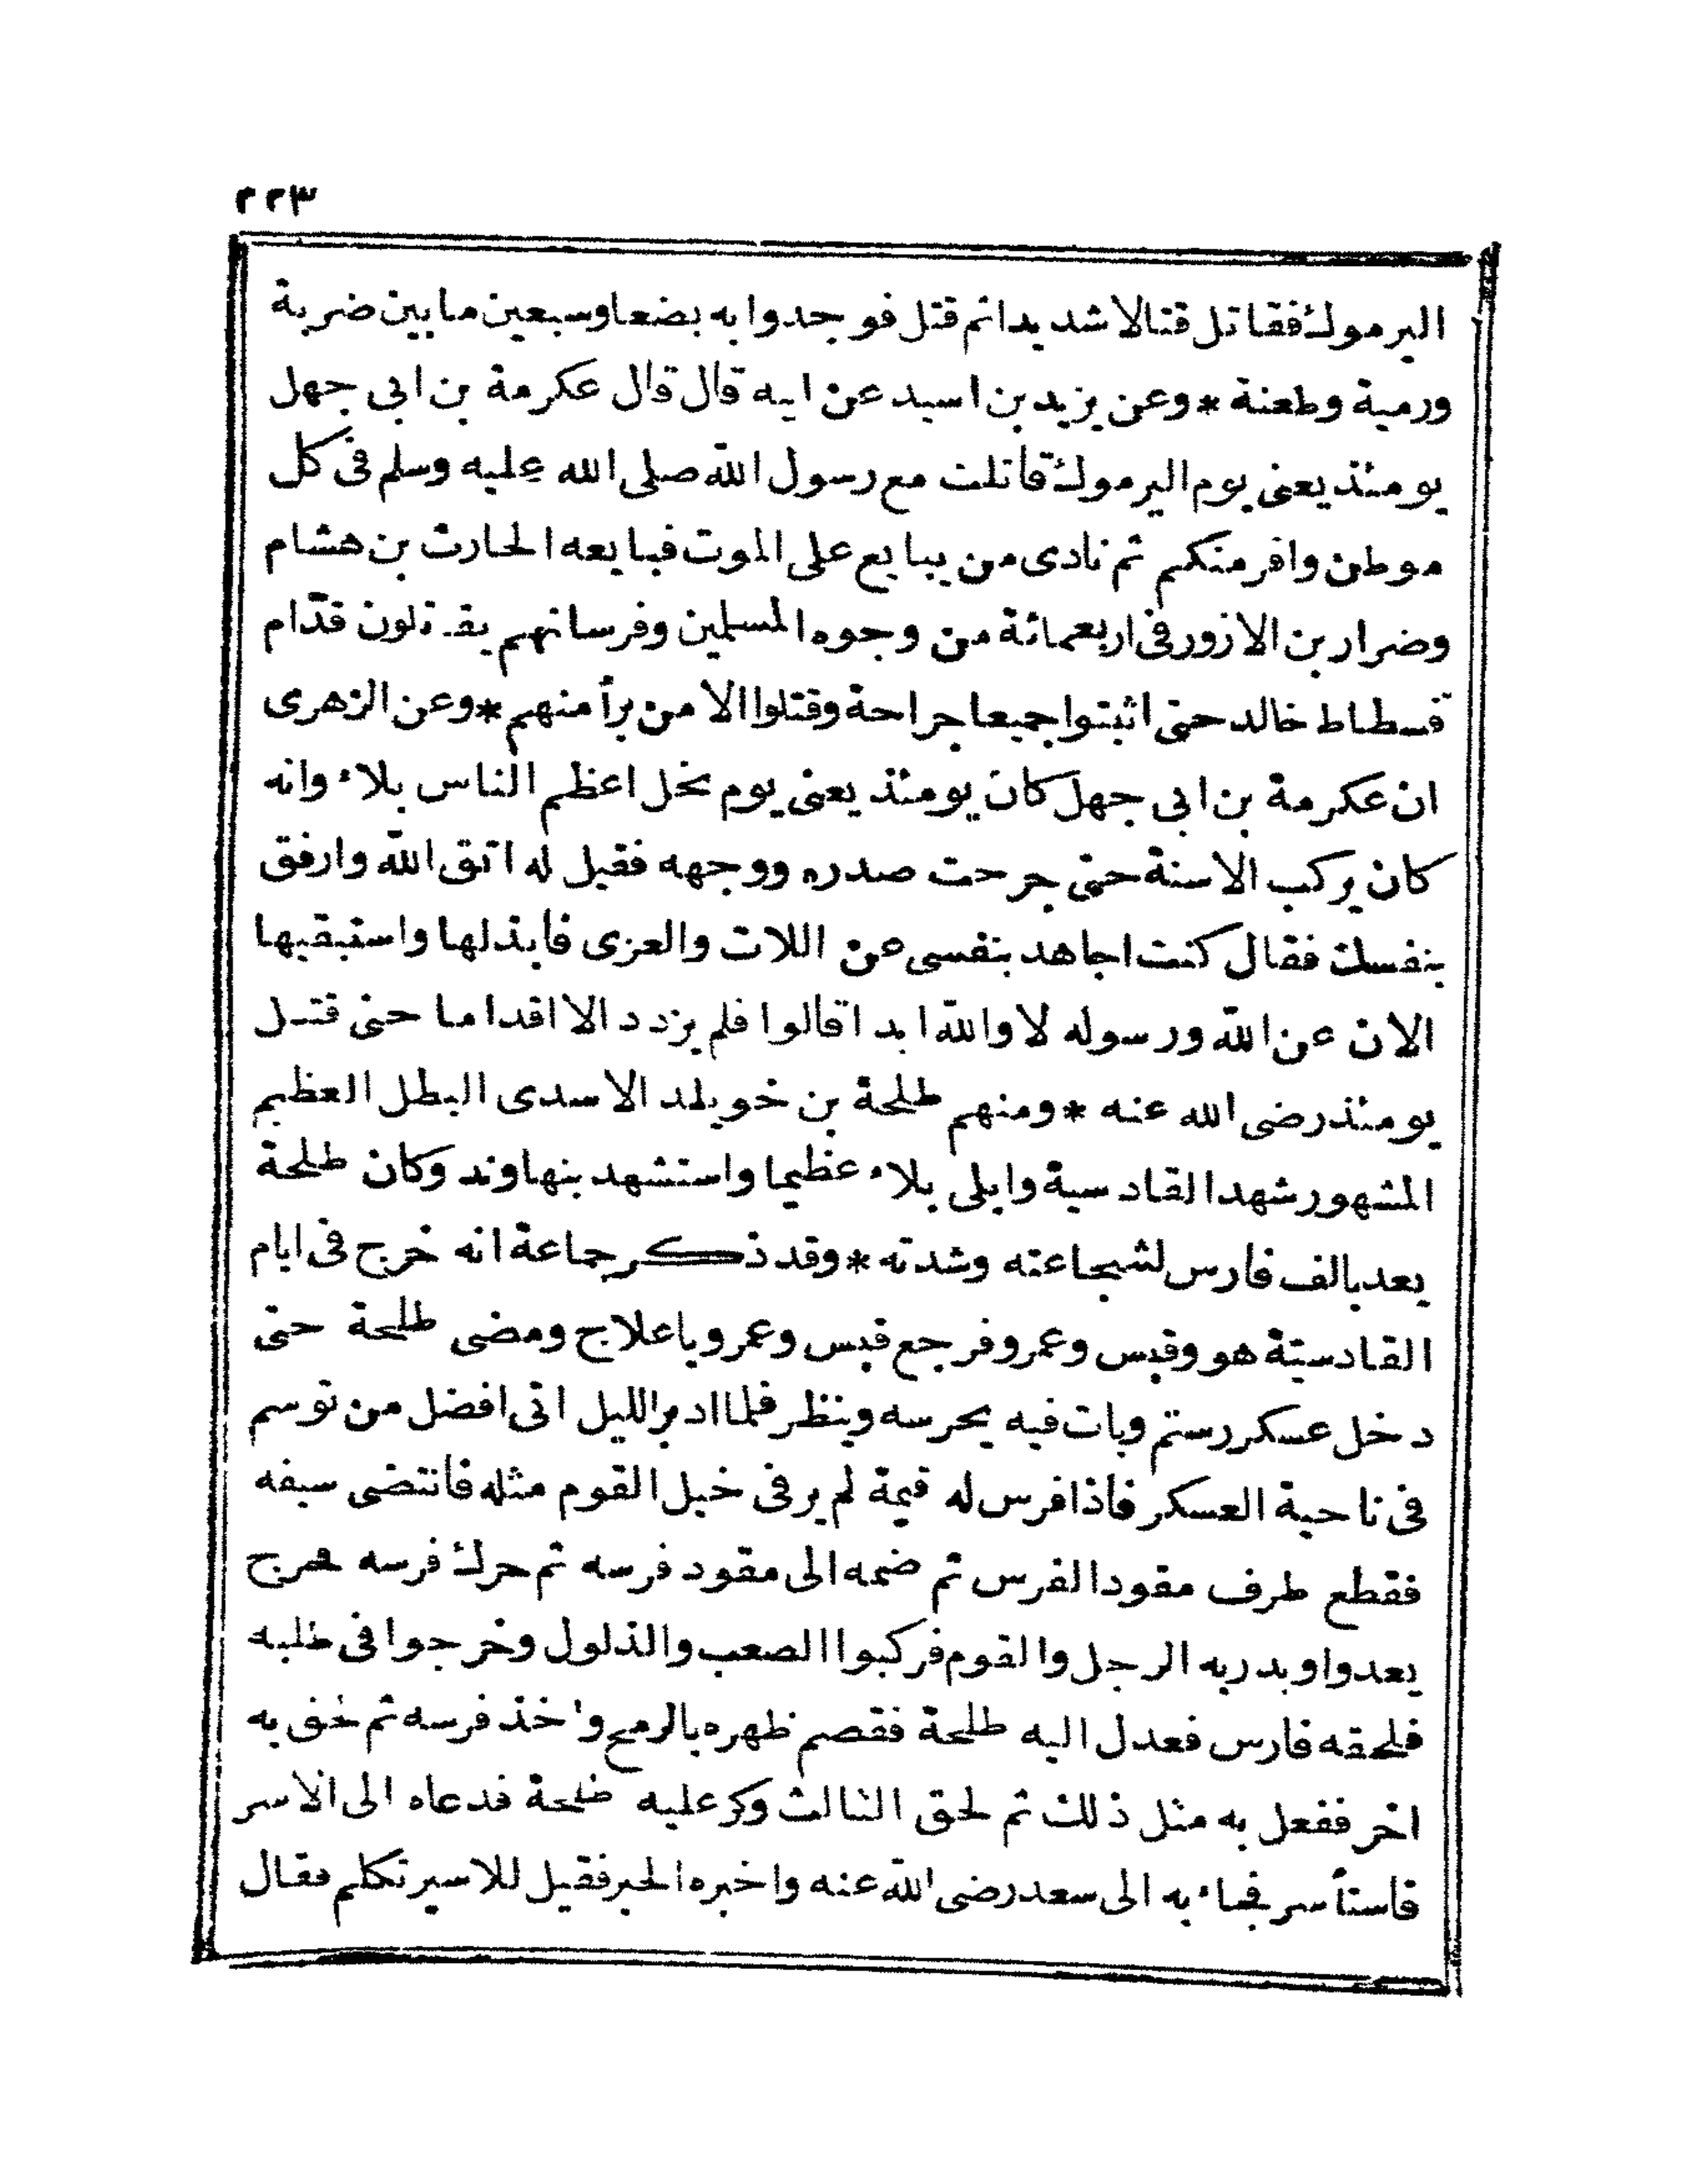 ٢٢٣
اليرموك فقاتل قتالا شديدا ثم قتل فوجدوا به بضعا وسبعين ما بين ضربة
ورمية وطعنة * وعن يزيد بن اسيد عن ابيه قال قال عكرمة بن ابى جهل
يومئذ يعنى يوم اليرموك قاتلت مع رسول الله صلى الله عليه وسلم فى كل
موطن وافر منكم ثم نادى من يبايع على الموت فبايعه الحارث بن هشام
وضرار بن الازور فى اربعمائة من وجوه المسلمين وفرسانهم يقاتلون قدّام
فسطاط خالد حتى اثبتوا جميعا جراحة وقتلوا الا من برأ منهم * وعن الزهرى
ان عكرمة بن ابى جهل كان يومئذ يعنى يوم نخل اعظم الناس بلاء وانه
كان يركب الاسنة حتى جرحت صدره ووجهه فقيل له اتق الله وارفق
بنفسك فقال كنت اجاهد بنفسى عن اللات والعزى فابذلها واستبقيها
الان عن الله ورسوله لا والله ابدا قالوا فلم يزدد الا اقداما حتى قتل
يومئذ رضى الله عنه * ومنهم طلحة بن خويلد الاسدى البطل العظيم
المشهور شهد القادسية وابلى بلاء عظيما واستشهد بنهاوند وكان طلحة
يعد بالف فارس لشجاعته وشدته * وقد ذكر جماعة انه خرج فى ايام
القادسيّة هو وقيس وعمرو فرجع قيس وعمرو باعلاج ومضى طلحة حتى
دخل عسكر رستم وبات فيه يحرسه وينظر فلما ادبر الليل اتى افضل من توسم
فى ناحية العسكر فاذا فرس له قيمة لم ير فى خيل القوم مثله فانتضى سيفه
فقطع طرف مقود الفرس ثم ضمه الى مقود فرسه ثم حرك فرسه فخرج
يعدوا وبدر به الرجل والقوم فركبوا الصعب والذلول وخرجوا فى طلبه
فلحقه فارس فعدل اليه طلحة فقصم ظهره بالرمح واخذ فرسه ثم لحق به
اخر ففعل به مثل ذلك ثم لحق الثالث وكر عليه طلحة فدعاه الى الاسر
فاستأسر فجاء به الى سعد رضى الله عنه واخبره الخبر فقيل للاسير تكلم فقال